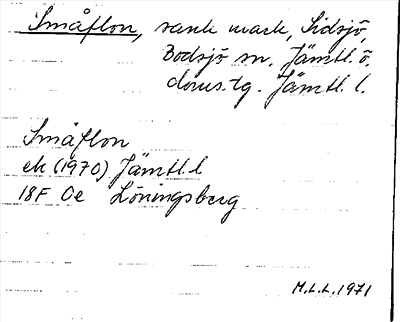 Småflon, sank mark, Sidsjö,
Bodsjö sn, Jämtl. ö.
doms.tg. Jämtl. l.
Småflon
ek (1970) Jämtl. l
18F 0e Löningsberg
M.L.L. 1971